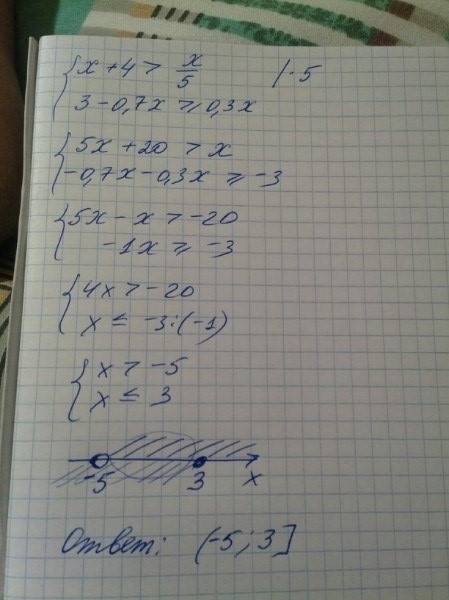 { x + 4 > x/5 | · 5
3 - 0,7x ⩾ 0,3x
{ 5x + 20 > x
-0,7x - 0,3x ⩾ -3
{ 5x - x > -20
-1x ⩾ -3
{ 4x > -20
x ≤ -3 : (-1)
{ x > -5
x ≤ 3
-5 3 x
Ответ: (-5; 3]